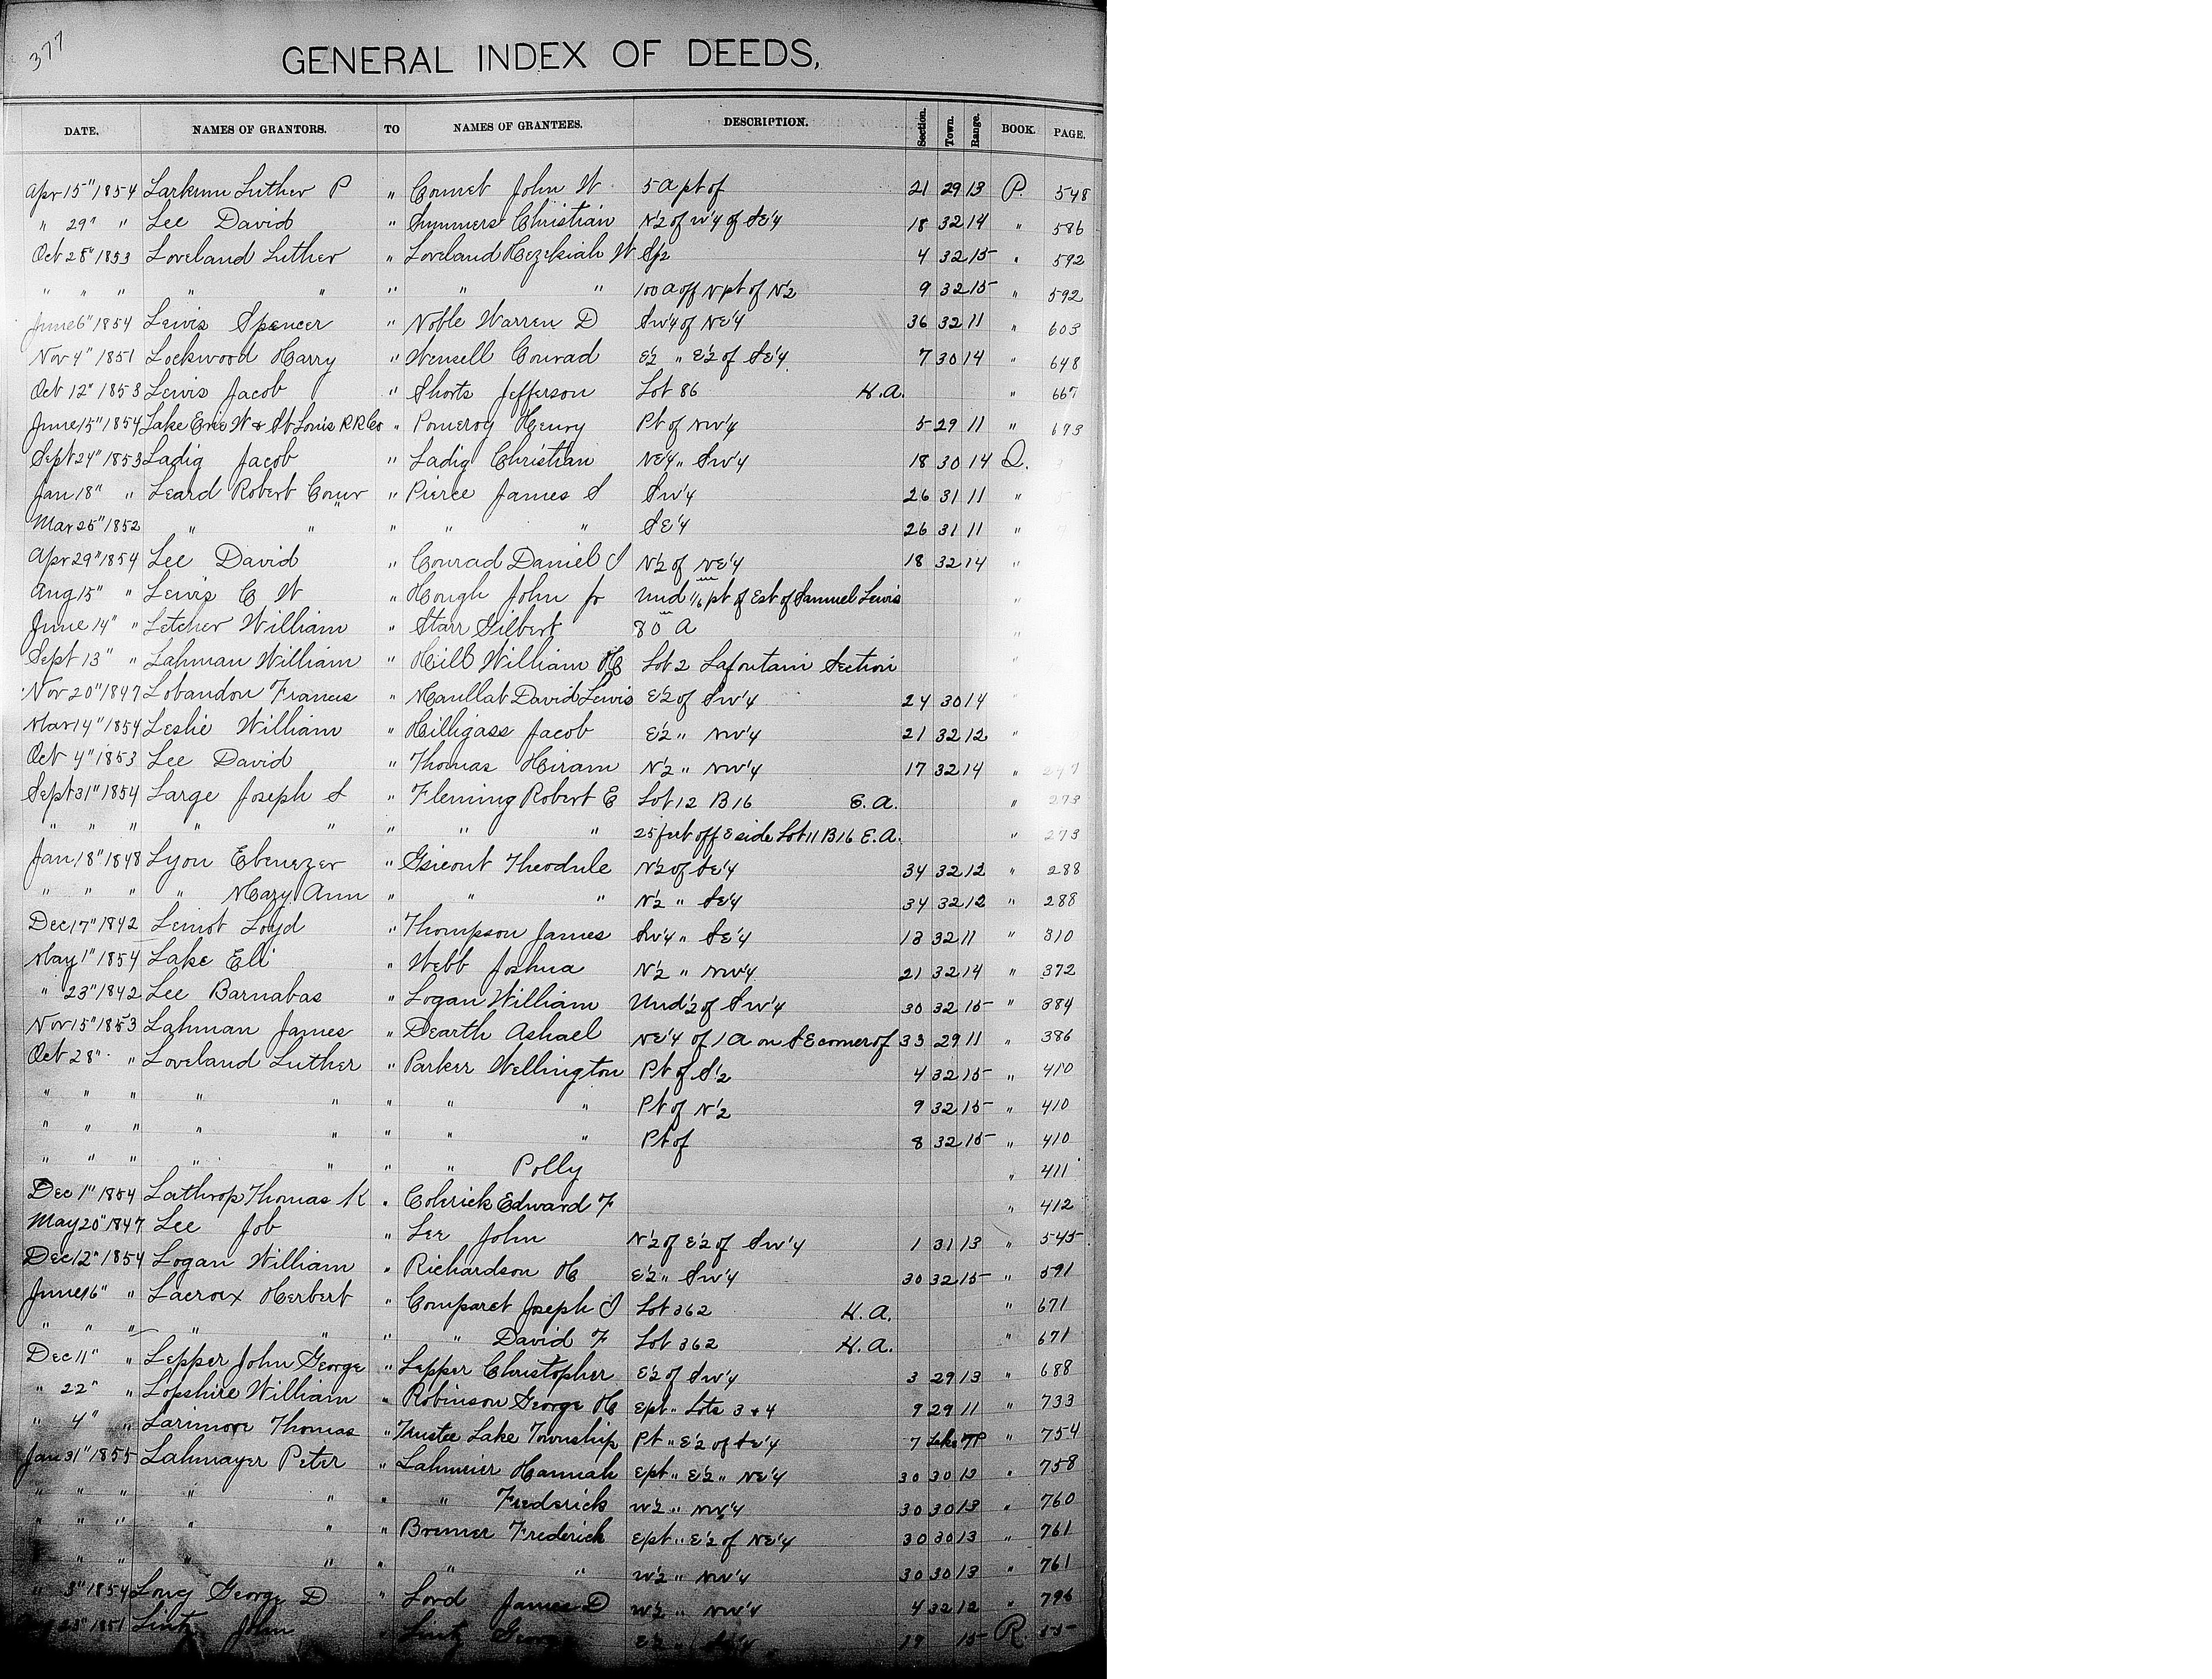 377
GENERAL INDEX OF DEEDS,
DATE. NAMES OF GRANTORS. TO NAMES OF GRANTEES. DESCRIPTION. Section. Town. Range. BOOK. PAGE.
Apr 15" 1854 Larkum Luther P " John W 5 a pt of 21 29 13 P. 548
" 29" " Lee David " Summers Christian N½ of W¼ of SE¼ 18 32 14 " 586
Oct 28" 1853 Loveland Luther " Loveland Hezekiah W S½ 4 32 15 " 592
" " " " " " " " 100 a off N pt of N½ 9 32 15 " 592
June 6" 1854 Lewis Spencer " Noble Warren D SW¼ of NE¼ 36 32 11 " 603
Nov 4" 1851 Lockwood Harry " Wensell Conrad E½ " E½ of SE¼ 7 30 14 " 648
Oct 12" 1853 Lewis Jacob " Shorts Jefferson Lot 86 H.A. " 667
June 15" 1854 Lake Erie W & St Louis R R Co " Pomeroy Henry Pt of NW¼ 5 29 11 " 673
Sept 24" 1853 Ladig Jacob " Ladig Christian NE¼ " SW¼ 18 30 14 Q.
Jan 18" " Leard Robert Comr " Pierce James S SW¼ 26 31 11 "
Mar 25" 1852 " " " " " SE¼ 26 31 11 "
Apr 29" 1854 Lee David " Conrad Daniel J N½ of NE¼ 18 32 14 "
Aug 15" " Lewis C W " Hough John Jr Und 1/6 pt of Est of Samuel Lewis "
June 14" " Letcher William " Starr Gilbert 80 A "
Sept 13" " Lahman William " Hill William H Lot 2 Lafontain Section "
Nov 20" 1847 Lobandon Francis " David Lewis E½ of SW¼ 24 30 14 "
Mar 14" 1854 Leslie William " Hilligass Jacob E½ " NW¼ 21 32 12 "
Oct 4" 1853 Lee David " Thomas Hiram N½ " NW¼ 17 32 14 " 247
Sept 31" 1854 Large Joseph S " Fleming Robert E Lot 12 B 16 E.A. " 273
" " " " " " " " 25 feet off E side Lot 11 B 16 E.A. " 273
Jan 18" 1848 Lyon Ebenezer " Theodule N½ of SE¼ 34 32 12 " 288
" " " " Mary Ann " " " N½ " SE¼ 34 32 12 " 288
Dec 17" 1842 Lemot Loyd " Thompson James SW¼ " SE¼ 13 32 11 " 310
May 1" 1854 Lake Eli " Webb Joshua N½ " NW¼ 21 32 14 " 372
" 23" 1842 Lee Barnabas " Logan William Und ½ of SW¼ 30 32 15 " 384
Nov 15" 1853 Lahman James " Dearth Ashael NE¼ of 1 A on SE corner of 33 29 11 " 386
Oct 28" " Loveland Luther " Parker Wellington Pt of S½ 4 32 15 " 410
" " " " " " " " Pt of N½ 9 32 15 " 410
" " " " " " " " Pt of 8 32 15 " 410
" " " " " " " Polly " 411
Dec 1" 1854 Lathrop Thomas K " Colerick Edward F " 412
May 20" 1847 Lee Job " Lee John N½ of E½ of SW¼ 1 31 13 " 545
Dec 12" 1854 Logan William " Richardson H E½ " SW¼ 30 32 15 " 591
June 16" " Lacroix Herbert " Comparet Joseph J Lot 362 H.A. " 671
" " " " " " " David F Lot 362 H.A. " 671
Dec 11" " Lepper John George " Lepper Christopher E½ of SW¼ 3 29 13 " 688
" 22" " Lopshire William " Robinson George H E pt " Lots 3 & 4 9 29 11 " 733
" 4" " Larimore Thomas " Trustee Lake Township Pt " E½ of SE¼ 7 Lake TP " 754
Jan 31" 1855 Lahmayer Peter " Lahmeier Hannah E pt " E½ " NE¼ 30 30 13 " 758
" " " " " " " Frederick W½ " NW¼ 30 30 13 " 760
" " " " " " Bremer Frederick E pt " E½ of NE¼ 30 30 13 " 761
" " " " " " " " W½ " NW¼ 30 30 13 " 761
" 3" 1854 Long George D " Lord James D W½ " NW¼ 4 32 12 " 796
23" 1851 John " E½ " 19 15 R.